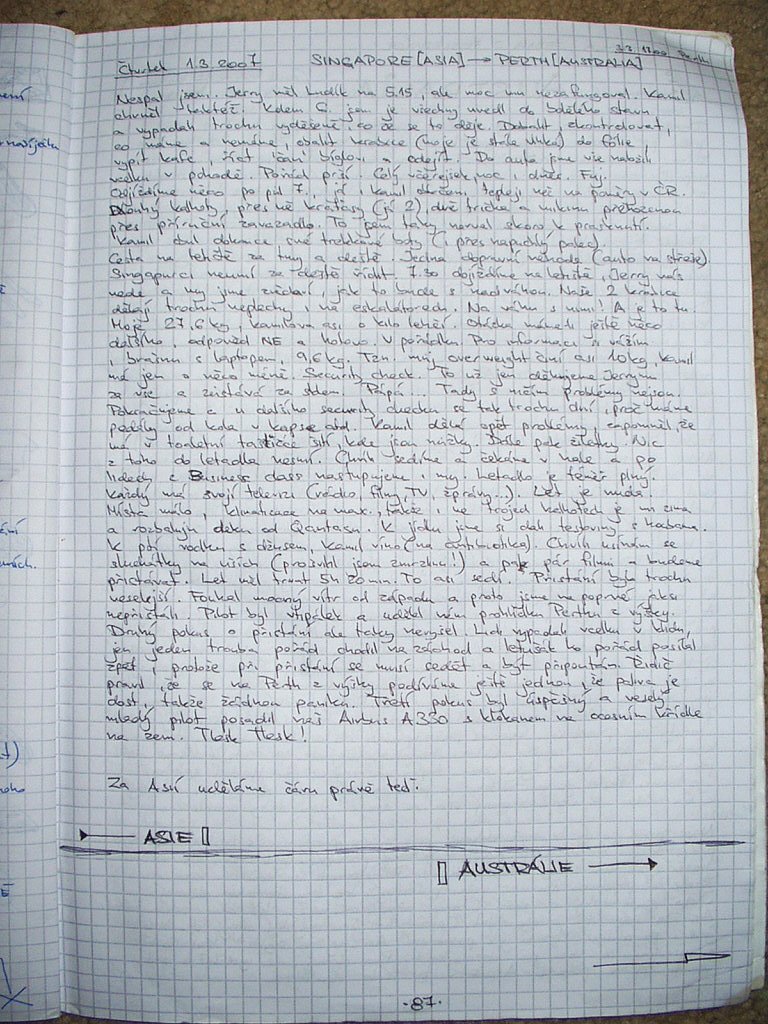 3.3. 1700 Perth
Čtvrtek 1.3.2007 SINGAPORE [ASIA] → PERTH [AUSTRALIA]
Nespal jsem. Jerry měl budík na 5.15, ale moc mu nezafungoval. Kamil
chvíli taktéž. Kolem 6. jsem je všechny uvedl do bdělého stavu
a vypadali trochu vyděšeně, co že se to děje. Dobalit, zkontrolovat,
co máme a nemáme, obalit krabice (moje je stále vlhká) do fólie,
vypít kafe, říct ciao bíglovi a odejít. Do auta jsme vše naložili
vcelku v pohodě. Pořád prší. Celý včerejšek, noc i dnes. Fuj.
Odjíždíme něco po půl 7., já i Kamil oblečeni tepleji než na poměry v ČR.
Dlouhý kalhoty, přes ně kraťasy (já 2), dvě trička a mikinu přehozenou
přes příruční zavazadlo. To jsem taky narval skoro k prasknutí.
Kamil obul dokonce své trekkové boty (i přes napuchlý palec).
Cesta na letiště za tmy a deště. Jedna dopravní nehoda (auto na střeše).
Singapurci neumí za deště řídit. 7.30 dojíždíme na letiště, Jerry nás
vede a my jsme zvědaví, jak to bude s nadváhou. Naše 2 krabice
dělají trochu neplechy i na eskalátorech. Na váhu s nimi! A je to tu.
Moje 27,6 kg, Kamilova asi o kilo lehčí. Otázka máte-li ještě něco
dalšího, odpověď NE a hotovo. V pořádku. Pro informaci si vážím
i brašnu s laptopem, 9,6 kg. Tzn. můj overweight činí asi 10 kg, Kamil
má jen o něco méně. Security check. To už jen děkujeme Jerrymu
za vše a zůstává za sklem. Pápá... Tady s ničím problémy nejsou.
Pokračujeme a u dalšího security checku se tak trochu diví, proč máme
pedály od kola v kapse atd. Kamil dělá opět problémy, zapomněl, že
má v toaletní taštičce šití, kde jsou nůžky. Dále pak žiletky. Nic
z toho do letadla nesmí. Chvíli sedíme a čekáme v hale a po
lidech z Business class nastupujeme i my. Letadlo je téměř plný.
Každý má svojí televizi (rádio, filmy, TV, zprávy...). Let je nuda.
Místa málo, klimatizace na max., takže i ve trojích kalhotech je mi zima
a rozbaluju deku od Qantasu. K jídlu jsme si dali těstoviny s
K pití vodku s džusem, Kamil víno (na antibiotika). Chvíli usínám se
sluchátky na uších (prosvítil jsem zmrzlinu!) a pak pár filmů a budeme
přistávat. Let měl trvat 5h 20min. To asi sedí. Přistání bylo trochu
veselejší. Foukal mocný vítr od západu a proto jsme na poprvé jaksi
nepřistáli. Pilot byl vtipálek a udělal nám prohlídku Perthu z výšky.
Druhý pokus o přistání ale taky nevyšel. Lidi vypadali vcelku v klidu,
jen jeden trouba pořád chodil na záchod a letušák ho pořád posílal
zpět, protože při přistání se musí sedět a být připoután. Řidič
pravil, že se na Perth z výšky podíváme ještě jednou, že paliva je
dost, takže žádnou paniku. Třetí pokus byl úspěšný a veselý
mladý pilot posadil náš Airbus A330 s klokanem na ocasním křídle
na zem. Tlesk tlesk!
Za Asií uděláme čáru právě teď.
ASIE
AUSTRÁLIE
·87·